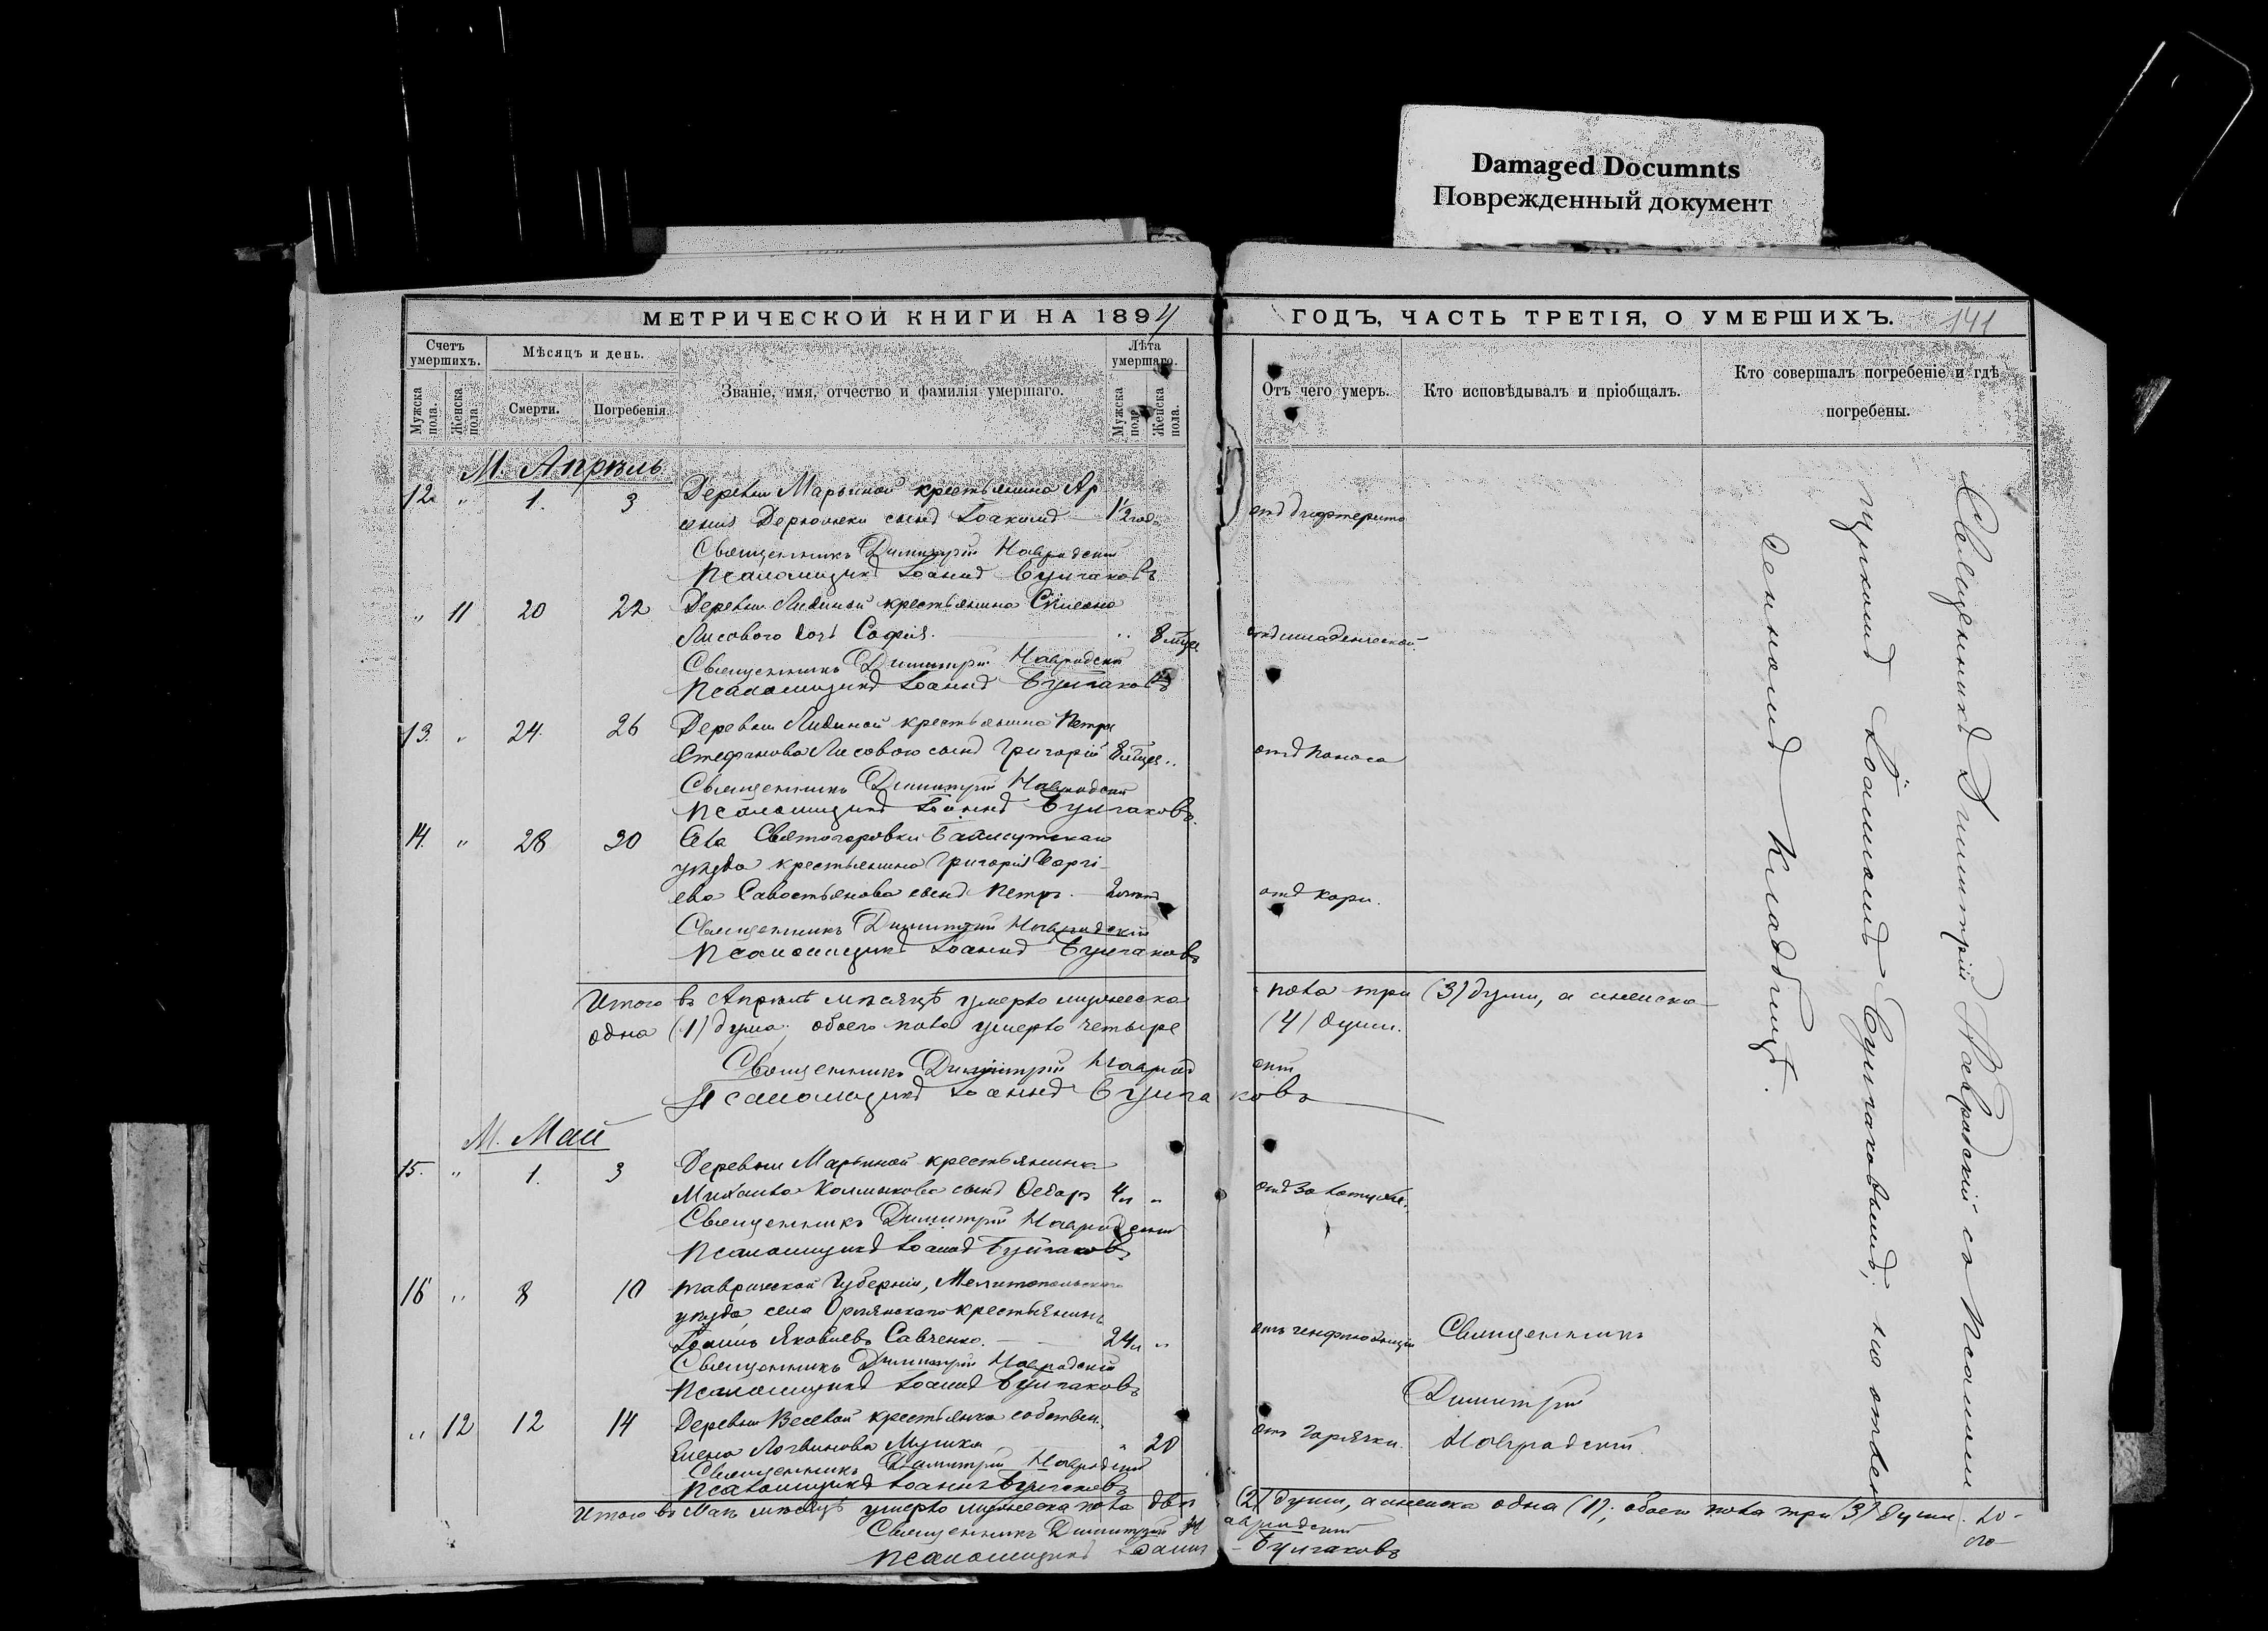 Damaged Documnts
Поврежденный документ
МЕТРИЧЕСКОЙ КНИГИ НА 1894
ГОДЪ, ЧАСТЬ ТРЕТІЯ, О УМЕРШИХЪ.
141
Счетъ умершихъ.
Мѣсяцъ и день.
Званіе, имя, отчество и фамилія умершаго.
Лѣта умершаго.
Мужска пола.
Женска пола.
Смерти.
Погребенія.
Мужска пола.
Женска пола.
Отъ чего умеръ.
Кто исповѣдывалъ и пріобщалъ.
Кто совершалъ погребеніе и гдѣ погребены.
М. Апрѣль
12 " 1. 3 Деревни Марьиной крестьянина Ар
сенія сынъ Іоакимъ 1/2 года отъ дифтерита
Священникъ Димитрій Навродскій
Псаломщикъ Іоаннъ Булгаковъ
" 11 20 22 Деревни крестьянина
Лисового дочь Софія. " 8 мѣся отъ младенческой.
Священникъ Димитрій Навродскій
Псаломщикъ Іоаннъ Булгаковъ
13. " 24. 26 Деревни крестьянина Петра
Стефанова Лисового сынъ Григорій 8 мѣся " отъ поноса
Священникъ Димитрій Навродскій
Псаломщикъ Іоаннъ Булгаковъ.
14. " 28 30 Села Святогоровки Бахмутскаго
уѣзда крестьянина Григорія Георгі-
ева Савостьянова сынъ Петръ. отъ кори.
Священникъ Димитрій Навродскій
Псаломщикъ Іоаннъ Булгаковъ
Итого въ Апрѣлѣ мѣсяцѣ умерло мужеска пола три (3) души, а женска
одна (1) душа, обоего пола умерло четыре (4) души.
Священникъ Димитрій Наврод скій
Псаломщикъ Іоаннъ Булга ковъ
М. Май
15. " 1. 3 Деревни Марьиной крестьянина
Михаила Колмыкова сынъ 4 л "
Священникъ Димитрій Навродскій
Псаломщикъ Іоаннъ Булгаковъ
16 " 8 10 Таврической Губерніи, Мелитопольскаго
уѣзда, села крестьянинъ
Іоаннъ Яковлевъ Савченко. 24 л " Священникъ
Священникъ Димитрій Навродскій
Псаломщикъ Іоаннъ Булгаковъ
Димитрій
" 12 12 14 Деревни Веселой крестьянка собствен.
Елена Логвинова " 20 отъ горячки. Навродскій.
Священникъ Димитрій Навродскій
Псаломщикъ Іоаннъ Булгаковъ
Итого въ Маѣ мѣсяцѣ умерло мужеска пола двѣ (2) души, а женска одна (1); обоего пола три (3) души.
Священникъ Димитрій Н авродскій
Псаломщикъ Іоаннъ Булгаковъ
Священникъ Димитрій Навродскій съ Псаломщи
Іоанномъ Булгаковымъ, на
Кладбищѣ.